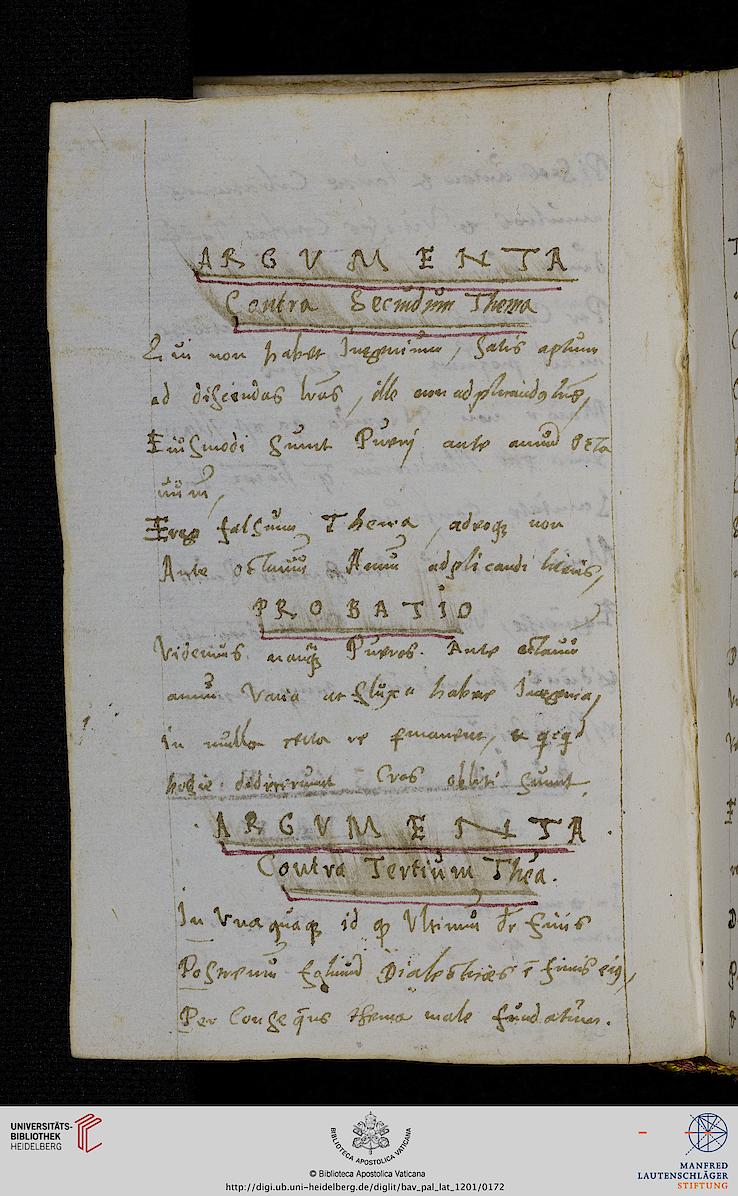 ARGVMENTA
Contra Secundum Thema
Qui non habet Ingenium, satis aptum
ad discendas lras, ille non
Eiusmodi sunt Puerj ante annū octa
uum,
Ergo falsum Thema, adeoq; non
Ante octauū Annū adplicandi literis,
PROBATIO
Videmus namq; Pueros. Ante octauū
annū Varia ut fluxa habere Ingenia,
in nulla certa re pmanent, et qcqd
hodie didicerunt Cras obliti sunt.
ARGVMENTA
Contra Tertium Thēa.
In Vnaquaq; id qd Vltimū dr finis
Postremū Dialecticæs ē finis eiꝯ,
Per Conseqēns thema male fundatum.
UNIVERSITÄTS-
BIBLIOTHEK
HEIDELBERG
BIBLIOTECA APOSTOLICA VATICANA
© Biblioteca Apostolica Vaticana
http://digi.ub.uni-heidelberg.de/diglit/bav_pal_lat_1201/0172
MANFRED
LAUTENSCHLÄGER
STIFTUNG